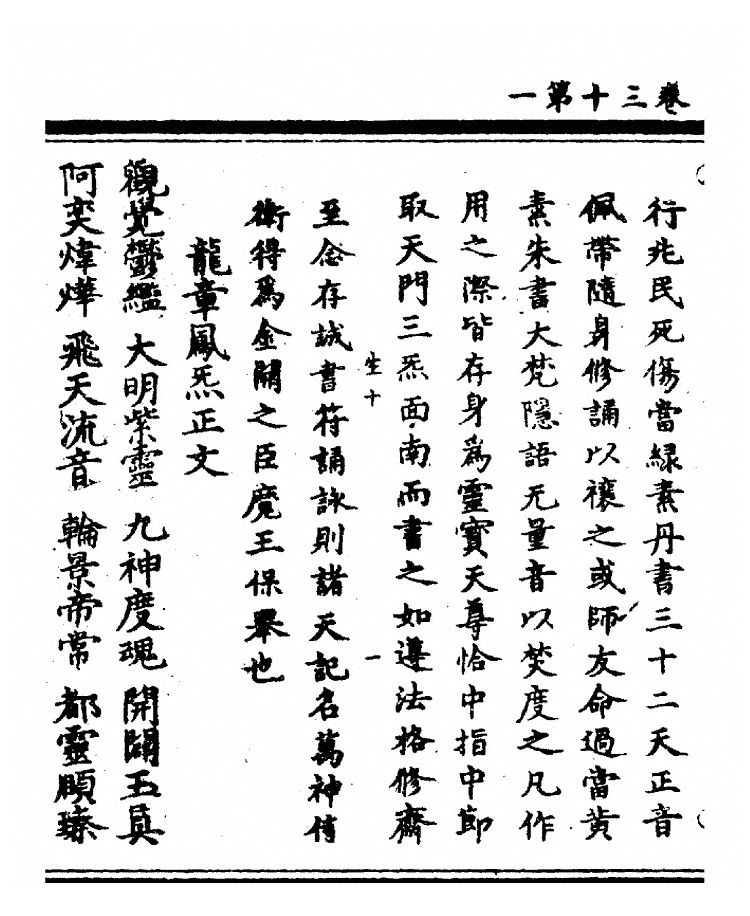 卷三十第一
行兆民死傷當綠素丹書三十二天正音
佩帶隨身修誦以禳之或師友命過當黄
素朱書大梵隱語无量音以焚度之凡作
用之際皆存身爲靈寶天尊恰中指中節
取天門三炁面南而書之如遵法格修齋
生十 一
至念存誠書符誦詠則諸天記名萬神侍
衛得爲金闕之臣魔王保舉也
龍章鳳炁正文
觀覺鬱鑑 大明紫靈 九神度魂 開闢玉眞
阿奕煒燁 飛天流音 輪景帝常 都靈願臻